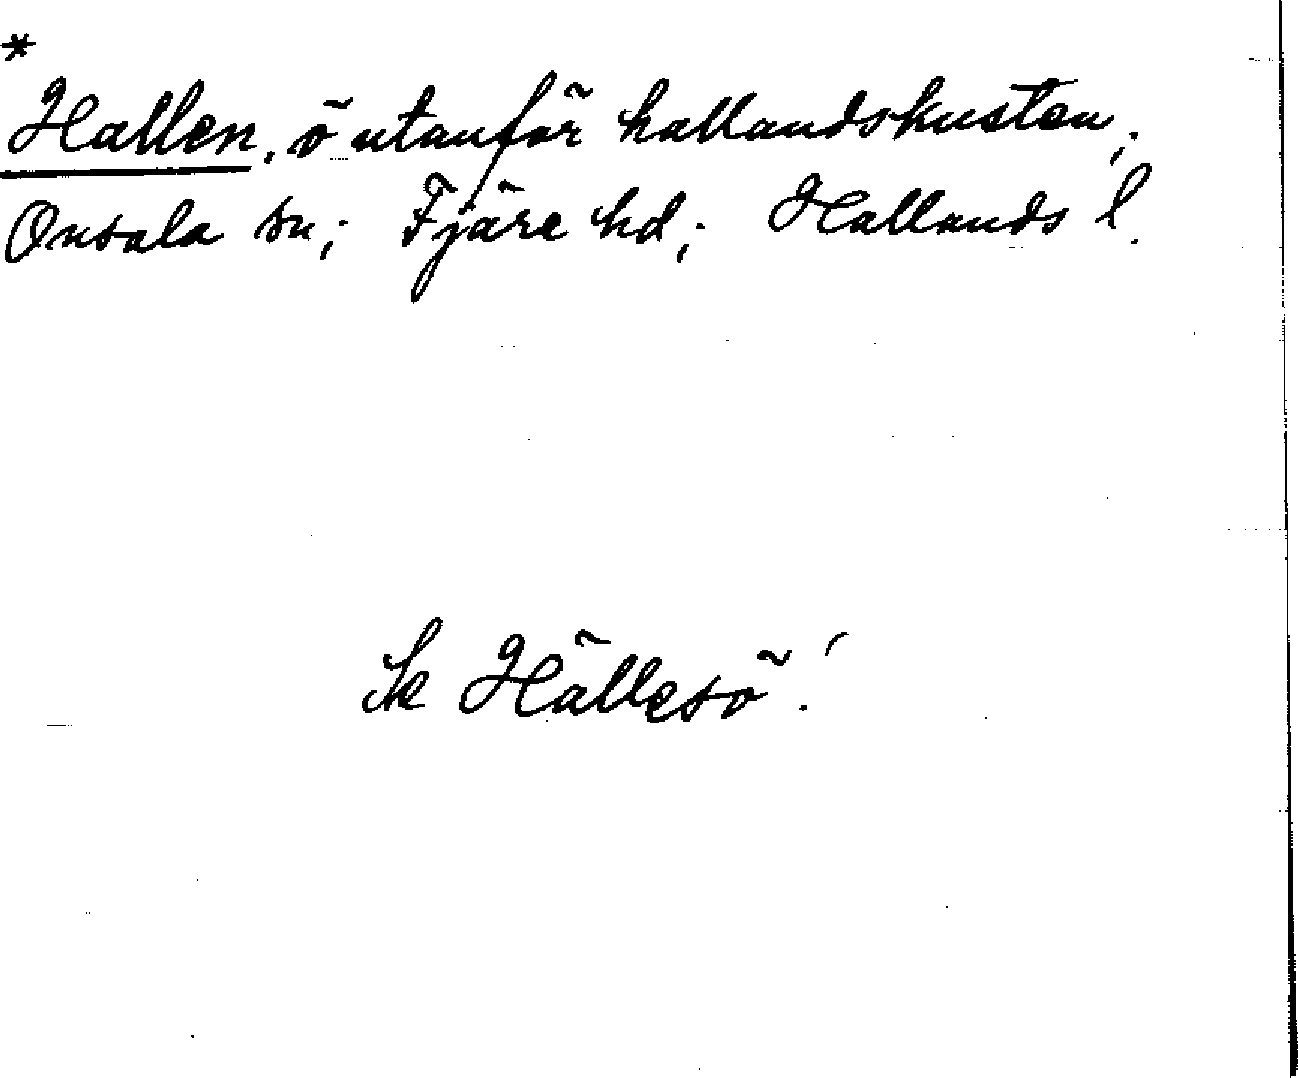 *
Hallen, ö utanför hallandskusten;
Onsala sn; Fjäre hd; Hallands l.
Se Hällesö!